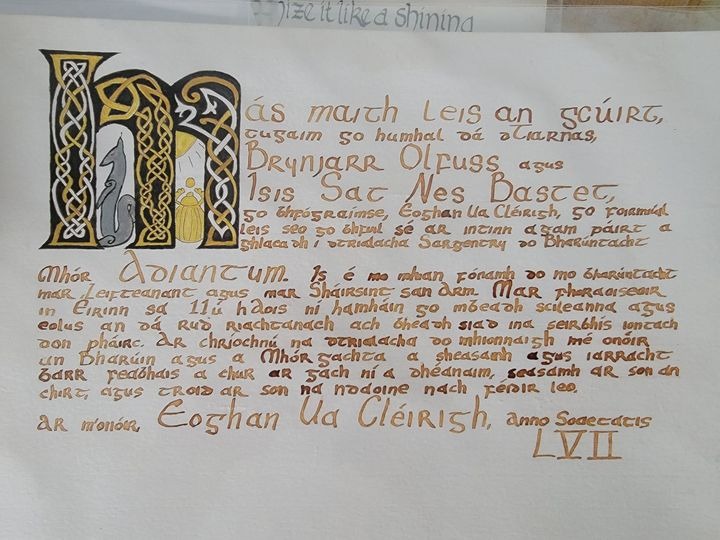 ize it like a shining
Más maith leis an gcúirt,
tugaim go humhal dá dtiarnas,
Brynjarr Olfuss agus
Isis Sat Nes Bastet,
go bhfógraímse, Eoghan Ua Cléirigh, go foirmiúil
leis seo go bhfuil sé ar intinn agam páirt a
ghlacadh i dtrialacha Sargentry do Bharúntacht
Mhór Adiantum. Is é mo mhian fónamh do mo bharúntacht
mar Leifteanant agus mar Sháirsint san Arm. Mar fharaiseoir
in Éirinn sa 11ú hAois ní hamháin go mbeadh scileanna agus
eolus an dá rud riachtanach ach bheadh siad ina seirbhís iontach
don pháirc. Ar chríochnú na dtrialacha do mhionnaigh mé onóir
an Bharúin agus a Mhórgachta a sheasamh agus iarracht
barr feabhais a chur ar gach ní a dhéanaim, seasamh ar son an
chirt, agus troid ar son na ndaoine nach féidir leo.
Ar m'onóir, Eoghan Ua Cléirigh, anno Societatis
LVII